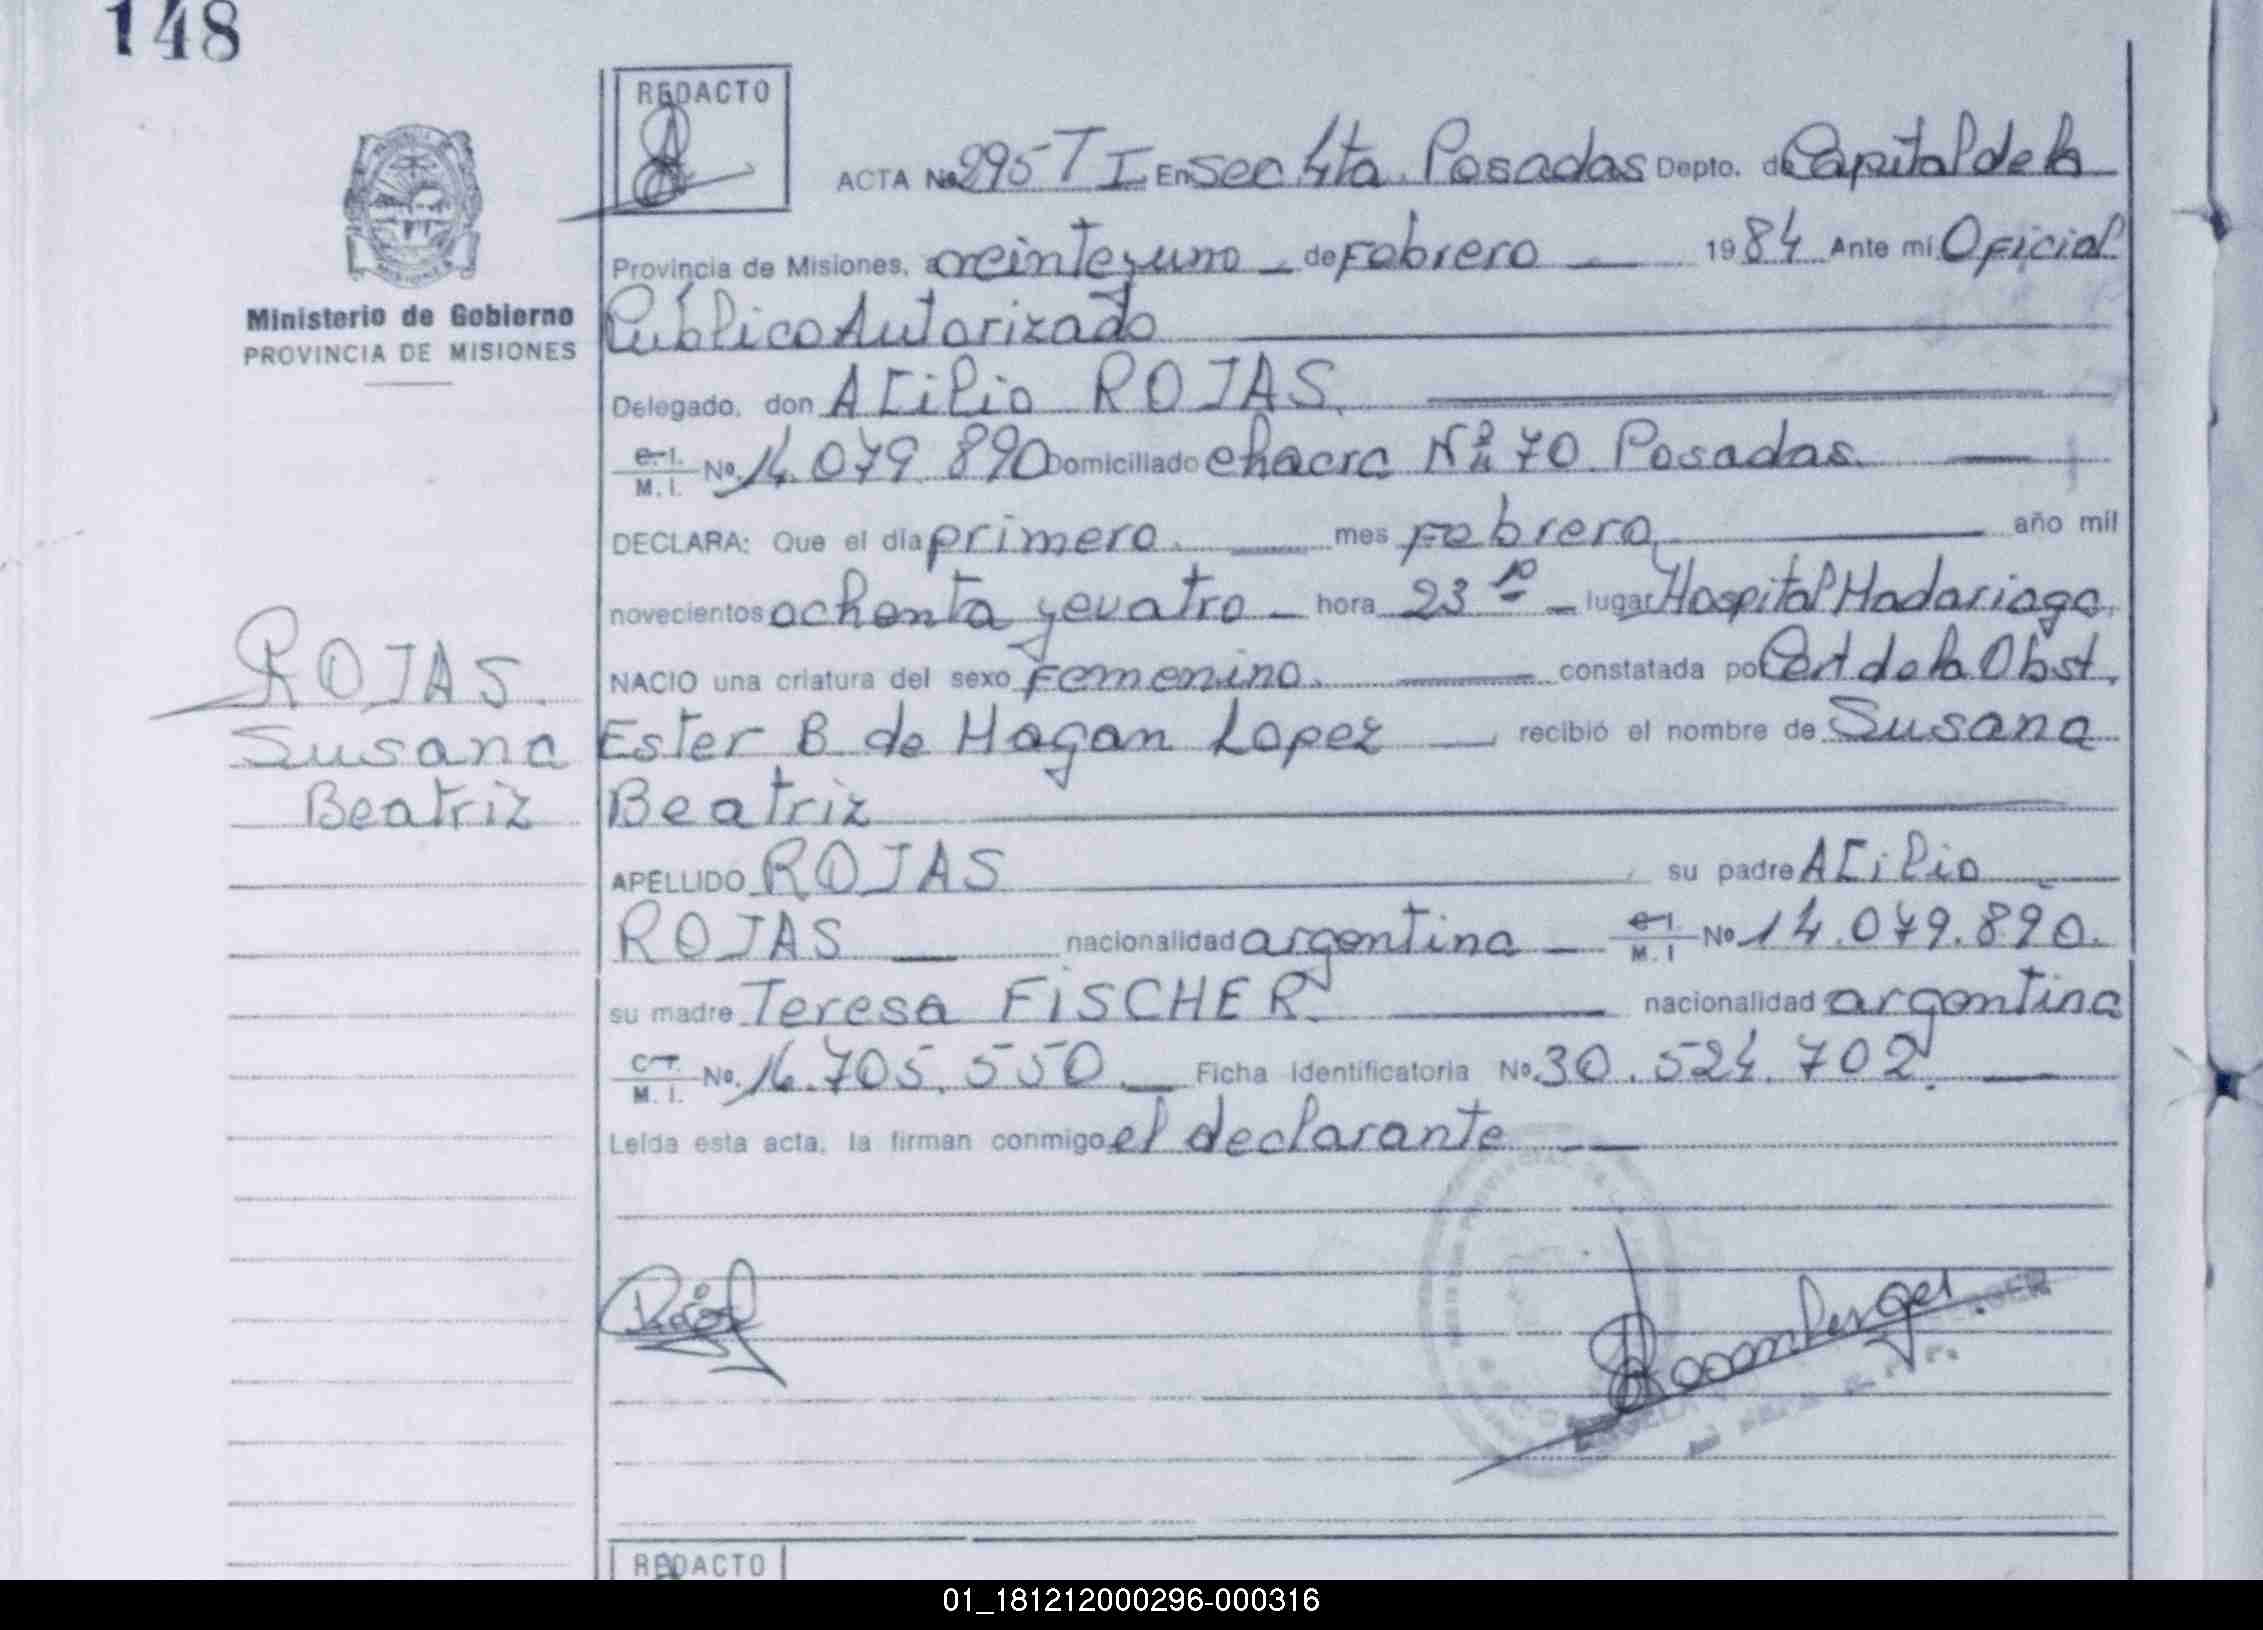 148
REDACTO
ACTA Nº 295 T I En Sec 4ta. Posadas Depto. de Capital de la
Provincia de Misiones, a veinteyuno de Febrero 1984 Ante mi Oficial
Público Autorizado
Ministerio de Gobierno
PROVINCIA DE MISIONES
Delegado, don ACilio ROJAS.
C.I. M.I. Nº. 14.079.890 Domiciliado chacra Nº 70 Posadas.
DECLARA: Que el día primero. mes Febrero año mil
novecientos ochenta y cuatro hora 23 lugar Hospital Madariaga.
NACIO una criatura del sexo Femenino. constatada por Cert de la Obst.
Ester B de Hagan Lopez recibió el nombre de Susana
Beatriz
ROJAS.
Susana
Beatriz
APELLIDO ROJAS su padre ACilio
ROJAS nacionalidad argentina C.I. M.I Nº 14.079.890.
su madre Teresa FiSCHER. nacionalidad argentina
C.I. M.I. Nº. 16.705.550. Ficha Identificatoria Nº. 30.524.702.
Leída esta acta, la firman conmigo el declarante
REDACTO
01_181212000296-000316